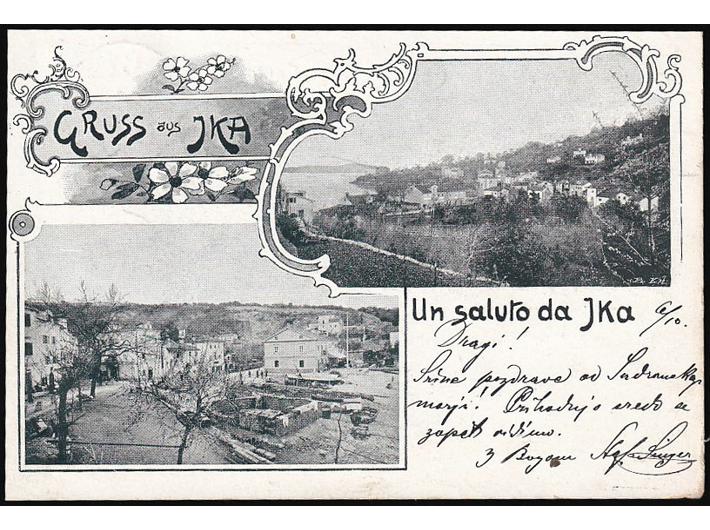 GRUSS aus JKA
Un saluto da JKA
6/10.
Dragi!
Srčne pozdrave od
morja! Prihodnjo sredo se
zopet vidimo.
Z Bogom